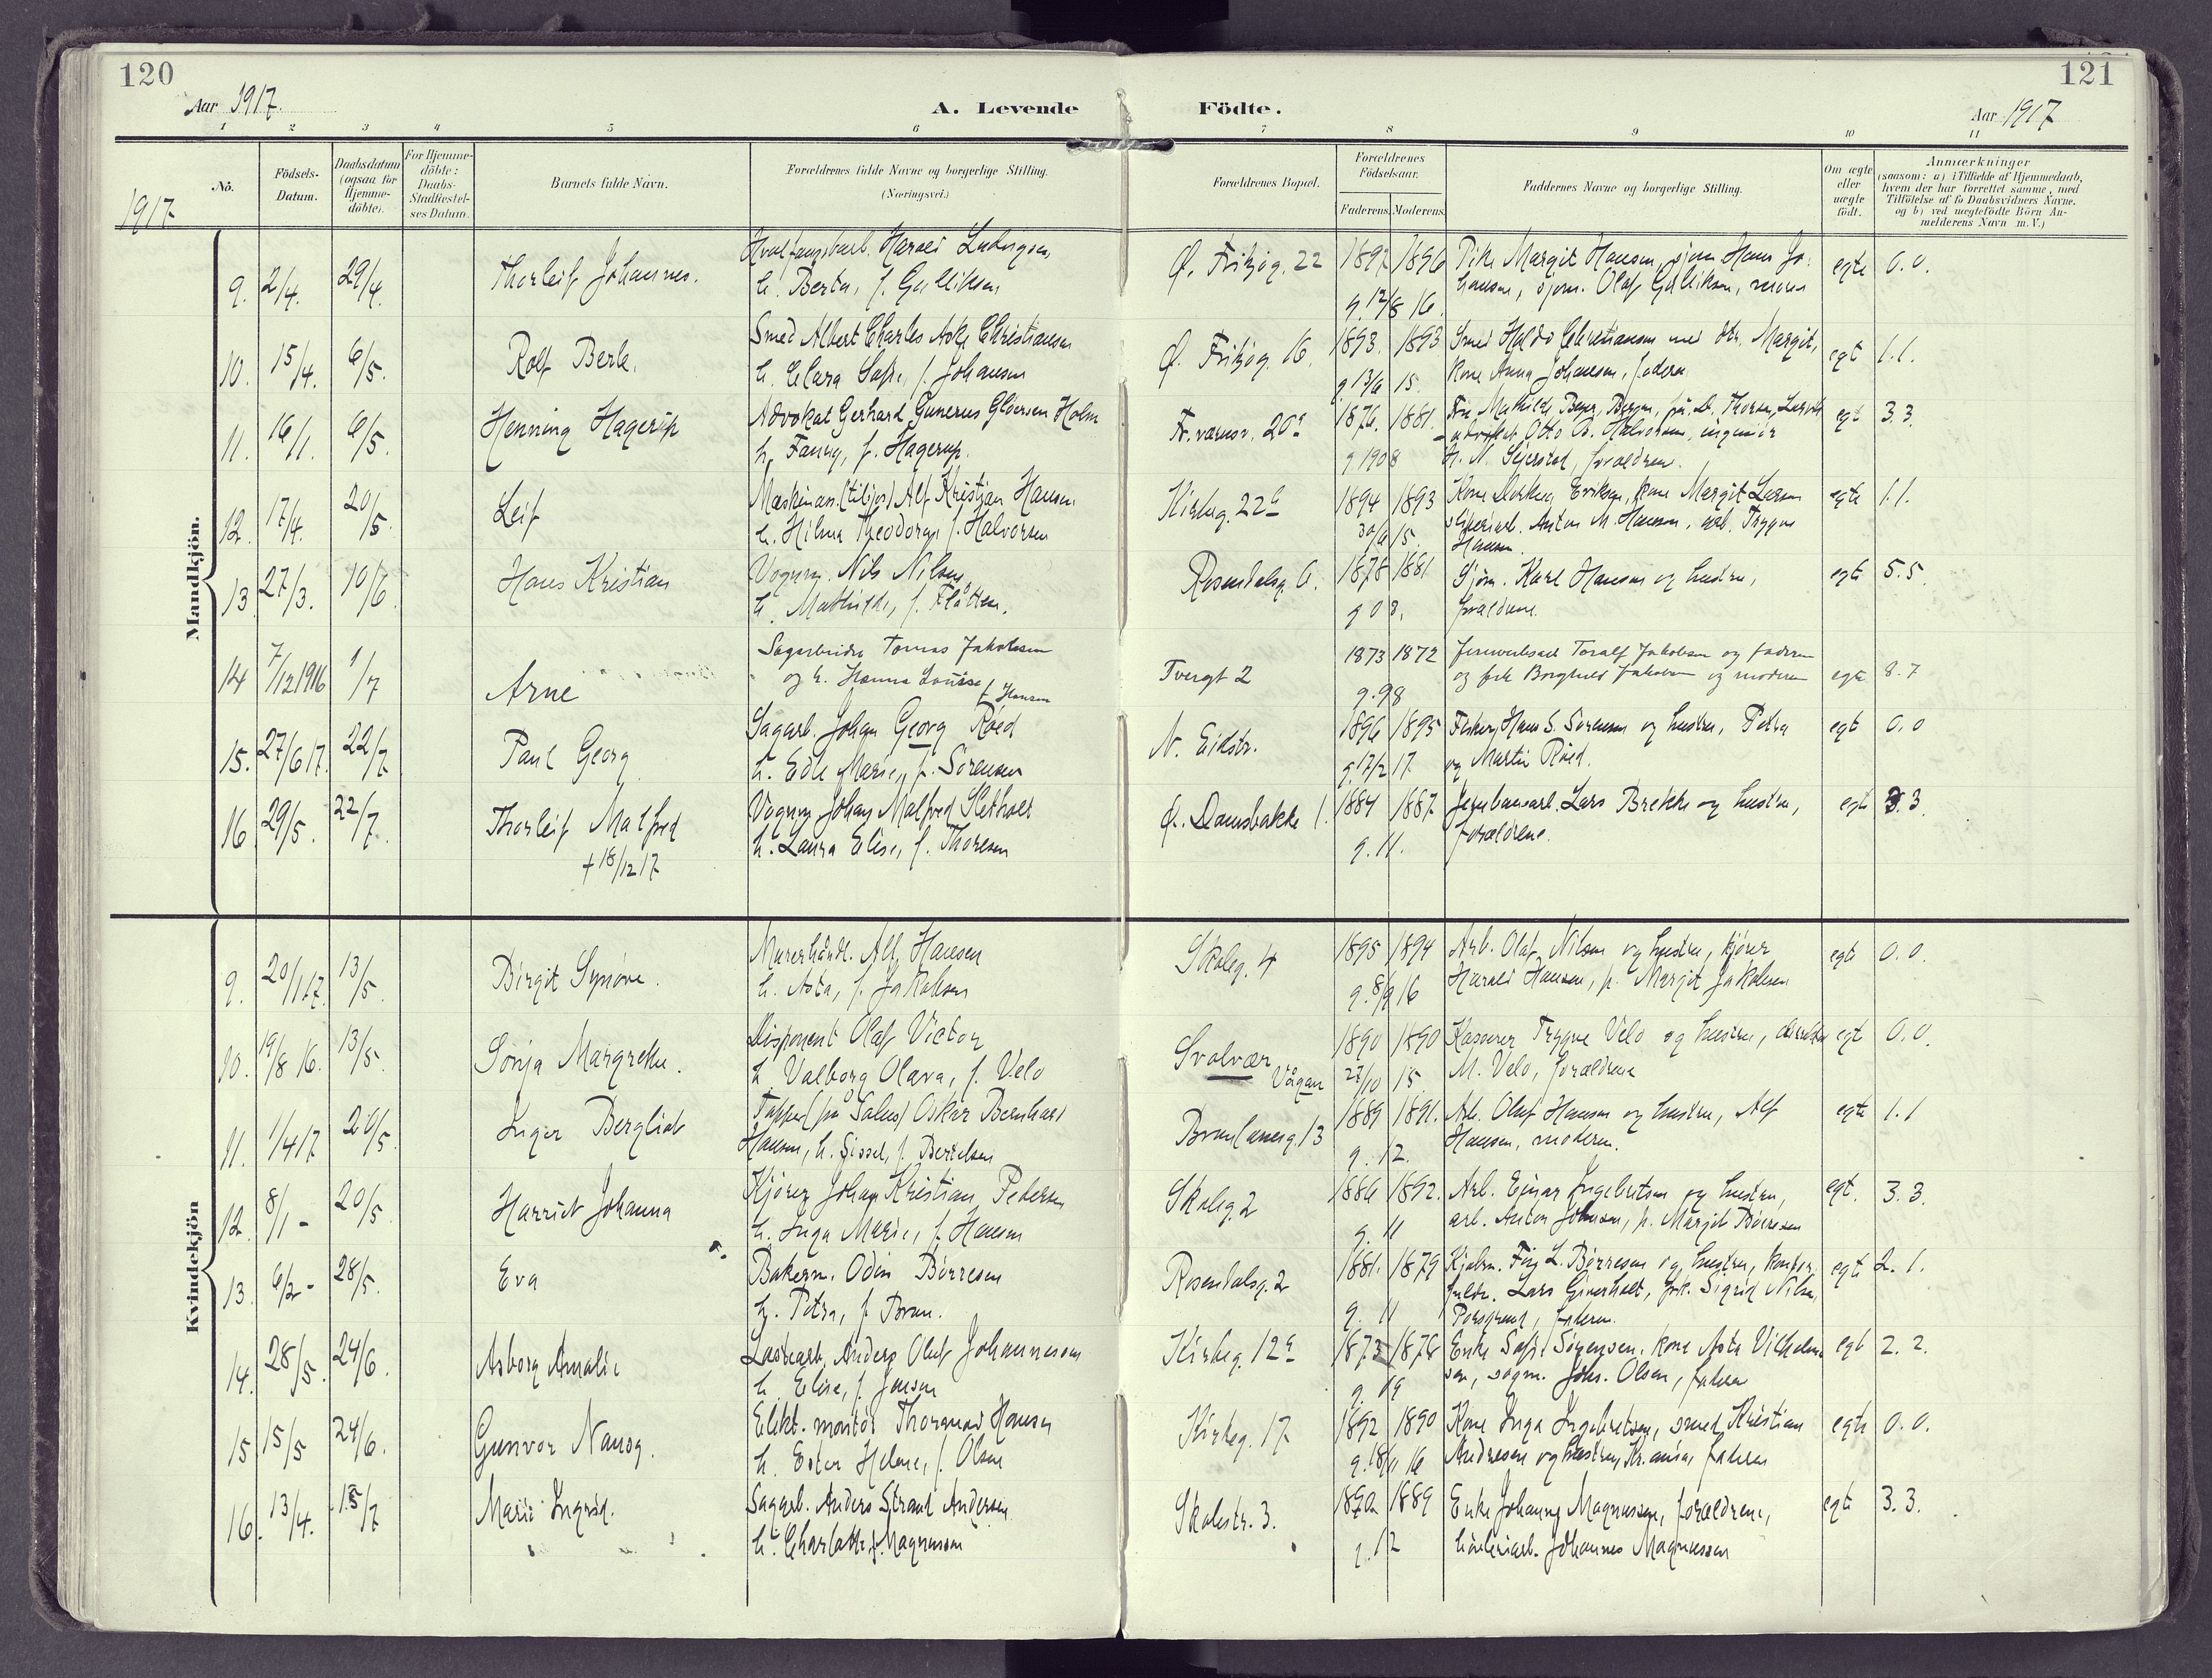 120
121
Aar 1917.
A. Levende
Födte.
Aar 1917
1 2 3 4 5 6 7 8 9 10 11
1917
No.
Födsels-
Datum.
Daabsdatum
(ogsaa for
Hjemme-
döbte).
For Hjemme-
döbte:
Daabs-
Stadfæstel-
ses Datum.
Barnets fulde Navn.
Forældrenes fulde Navne og borgerlige Stilling.
(Næringsvei.)
Forældrenes Bopæl.
Forældrenes
Födselsaar.
Faderens. Moderens.
Faddernes Navne og borgerlige Stilling.
Om ægte
eller
uægte
født.
Anmærkninger
(saasom: a) i Tilfælde af Hjemmedaab,
hvem der har forrettet samme, med
Tilföielse af to Daabsvidners Navne.
og b) ved uægtefödte Börn An-
melderens Navn m. V.)
Mandkjön.
9. 2/4. 29/4. Thorleif Johannes.
Harald Ludvigsen,
h. Berta, f. Gulliksen
Ø. Fritzøg. 22
1892 1896
g. 12/8 16.
Pike Margit Hansen, sjøm. Hans Jo-
hansen, sjøm. Olaf Gulliksen, moren
egte 0.0.
10. 15/4. 6/5. Rolf Berle.
Smed Albert Charles Aske Christiansen
h. Clara Sofie, f. Johansen
Ø. Fritzøg. 16.
1893. 1893
g 13/6 15.
Smed Haldo Christiansen med dtr. Margit,
kone Anna Johansen, faderen
egt 1.1.
11. 16/1. 6/5. Henning Hagerup
Advokat Gerhard Gunerus Gløersen Holm
h. Fanny, f. Hagerup.
1876. 1881.
g 1908
Fru Mathilde Beyer, Bergen,
advokat Otto B. Halvorsen, ingeniør
N. Sejersted, forældrene.
egt 3.3.
12. 17/4. 20/5. Leif
Alf Kristian Hansen
h. Hilma Theodora f. Halvorsen
Kirkeg. 22
1894 1893
30/6 15.
Eriksen, kone Margit Larsen
Anton M. Hansen, arb. Trygve
Hansen.
egte 1.1.
13. 27/3. 10/6. Hans Kristian
Vognm. Nils Nilsen,
h. Mathilde, f. Flåtten.
Rosendalsg. 6.
1878 1881
g 08.
Sjøm. Karl Hansen og hustru,
forældrene.
egte 5.5.
14 7/12 1916 1/7 Arne
Tomas Jakobsen
og h. Hanna Lovise f. Hansen
Tvergt 2
1873 1872
g. 98
Toralf Jakobsen og faderen
og frk Borghild Jakobsen og moderen
egte 8.7
15. 27/6 17. 22/7 Paul Georg
Sagarb. Johan Georg Røed
h. Edle Marie, f. Sørensen
N. Eidstr.
1896 1895
g. 17/2 17
Fisker Hans S. Sørensen og hustru, Petra
og Martin Røed.
egt 0.0
16 29/5. 22/7. Thorleif Malfred
+ 18/12 17
Vognm. Johan Malfred Sletholt
h. Laura Elise, f. Thoresen
Ø. Damsbakke 1.
1884 1887
g. 11.
Jernbanearb. Lars Brekke og hustru,
forældrene.
egt 3.3
Kvindekjön
9. 20/1 17. 13/5. Birgit Synøve.
Murerhåndl. Alf Hansen
h. Asta, f. Jakobsen
Skoleg. 4
1895 1894
g. 8/9 16
Arb. Olaf Nilsen og hustru, kjører
Harald Hansen, p. Margit Jakobsen
egte 0.0.
10. 19/8 16. 13/5. Sonja Margrethe.
Disponent Olaf Victor
h. Valborg Olava, f. Velo
Svolvær
Vågan
1890 1890
27/10 15.
Kasserer Trygve Velo og hustru,
M. Velo, forældrene
egt 0.0.
11. 1/4 17 20/5. Inger Bergliot
Tapper (på Salus) Oskar Bernhard
Hansen, h. Sissel, f. Bertelsen
13
1889 1891.
g. 12.
Arb. Oluf Hansen og hustru, Alf
Hansen, moderen.
egte 1.1
12. 8/1 - 20/5 Harriet Johanna
Kjører Johan Kristian Pedersen
h. Inga Marie, f. Hansen
Skoleg. 2
1886 1892.
g. 11
Arb. Einar Ingebretsen og hustru,
arb. Anton Johnsen, p. Margit Børresen
egt. 3.3.
13. 6/2 - 28/5. Eva
Bakerm. Odin Børresen
h. Petra, f. Bran.
Rosendalsg. 2
1881. 1879
g. 11
Finn L. Børresen og hustru,
Lars Giverholt, frk. Sigrid Nilsen,
Porsgrund, faderen.
egte 2.1.
14. 28/5. 24/6. Asborg Amalie
Lastearb. Anders Oluf Johannessen
h. Elise, f. Jensen
Kirkeg. 12
1873 1878
g. 09
Enke Sofie Sørensen, kone Asta Vilhelm-
sen, sagm. Johs. Olsen, faderen
egt 2.2.
15 15/5 24/6. Gunvor Nancy.
Elekt. montør Thormod Hansen
h. Ester Helene, f. Olsen
Kirkeg. 17
1892 1890
g. 18/11 16
Kone Inga Ingebretsen, smed Kristian
Andresen og hustru, Kr.ania, faderen
egte 0.0.
16. 13/4. 15/7 Marie Ingrid.
Sagarb. Anders Strand Andersen
h. Charlotte f. Magnussen
Skolestr. 3.
1890 1889
g. 12
Enke Johanne Magnussen, forældrene,
Johannes Magnussen
egte 3.3.